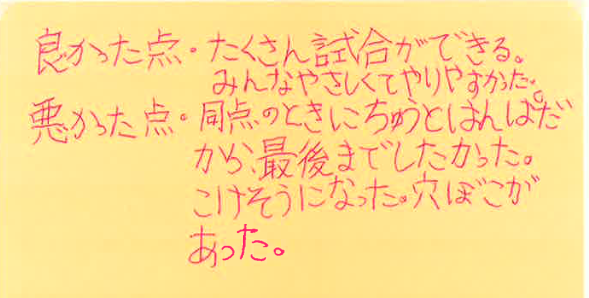 良かった点・たくさん試合ができる。
みんなやさしくてやりやすかった。
悪かった点・同点のときにちゅうとはんぱだ
から、最後までしたかった。
こけそうになった。穴ぼこが
あった。